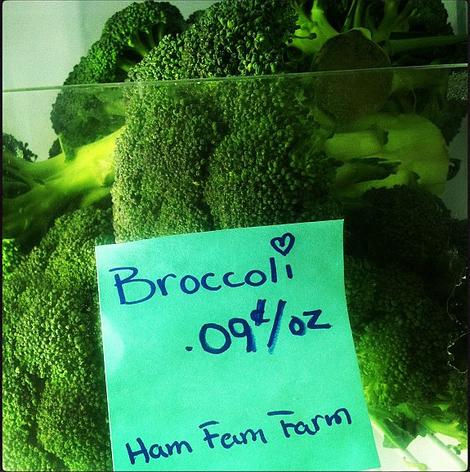 Broccoli
.09¢/oz
Ham Fam Farm